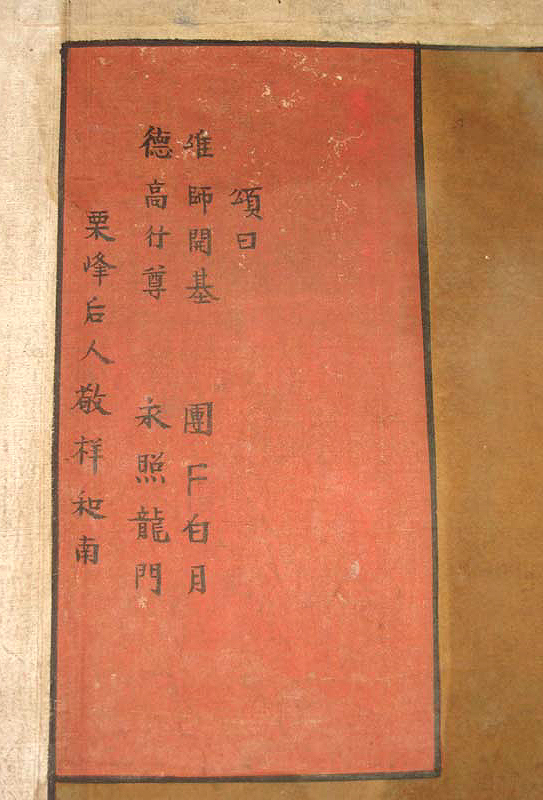 頌曰
維師開基 團团白月
德高行尊 永照龍門
栗峰后人敬祥和南